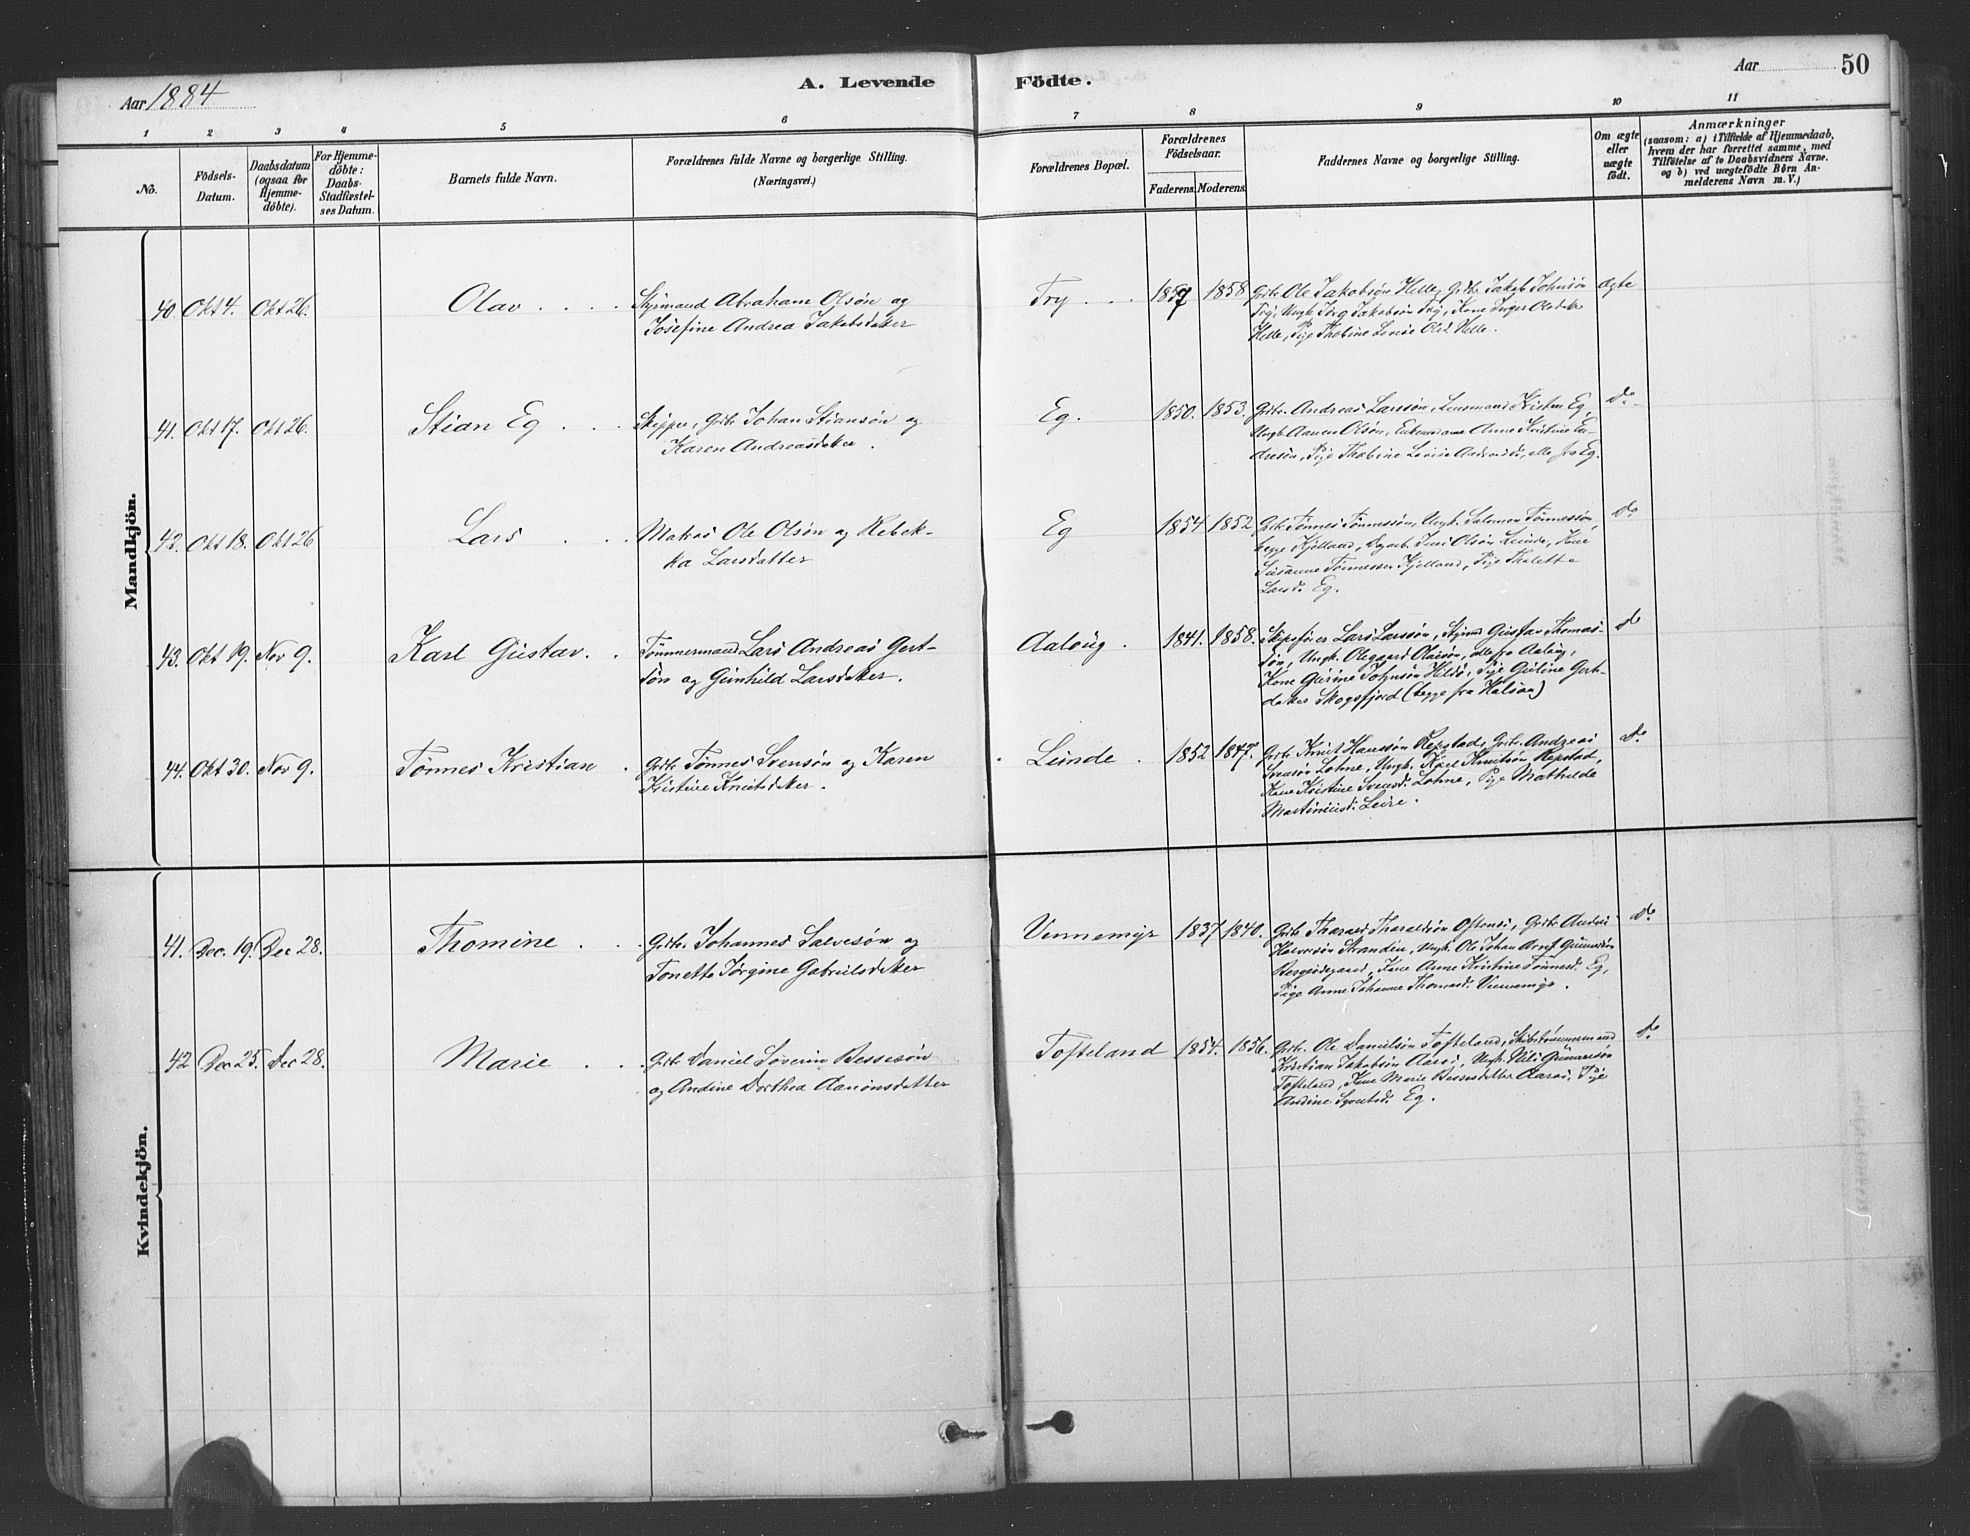 Aar 1884
A. Levende Födte.
Aar 50
1 2 3 4 5 6 7 8 9 10 11
No.
Födsels-
Datum.
Daabsdatum
(ogsaa for
Hjemme-
döbte).
For Hjemme-
döbte:
Daabs-
Stadfæstel-
ses Datum.
Barnets fulde Navn.
Forældrenes fulde Navne og borgerlige Stilling.
(Næringsvei.)
Forældrenes Bopæl.
Forældrenes
Födselsaar.
Faderens. Moderens.
Faddernes Navne og borgerlige Stilling.
Om ægte
eller
uægte
födt.
Anmærkninger
(saasom: a) i Tilfælde af Hjemmedaab,
hvem der har forrettet samme, med
Tilföielse af to Daabsvidners Navne.
og b) ved uægtefödte Börn An-
melderens Navn m. V.)
Mandkjön.
40. Okt 4. Okt 26. Olav
Styrmand Abraham Olsøn og
Josefine Andrea Jakobsdatter
Try 1857 1858
Grdbr Ole Jakobsøn Helle, Grdbr Jakob Johnsøn
Try, Ungk. Jørg Jakobsøn Try, Kone Inger Olsdatter
Helle, Pige Thobine Lovise Olsd. Helle.
ægte
41. Okt 17. Okt 26. Stian Eg
Skipper, Grdbr Johan Stiansøn og
Karen Andreasdatter.
Eg. 1850. 1853.
Grdbr. Andreas Larssøn, Lensmand Kristen Eg,
Ungk Aanen Olsøn, Enkemadame Anne Kristine An-
dresen, Pige Thobine Lovise Andreasd., alle fra Eg.
do
42. Okt 18. Okt 26 Lars
Matros Ole Olsøn og Rebek-
ka Larsdatter
Eg 1854 1852
Grdbr Tønnes Tønnessøn, Ungk. Salomon Tønnessøn,
begge Kjelland, Olsøn Lunde, Kone
Susanne Tønnessen Kjelland, Pige Thalette
Larsd. Eg.
do
43. Okt 19. Nov 9. Karl Gustav.
Tømmermand Lars Andreas Gert-
søn og Gunhild Larsdatter.
Aaløug. 1841. 1858.
Skipsfører Lars Larssøn, Styrmd Gustav Thomas-
søn, Ungk. Olegaard Olaisøn, alle fra Aaløug,
Kone Gurine Johnsøn Hildø, Pige Guline Gert-
datter Skogsfjord (begge fra Halsaa)
do
44. Okt 30. Nov 9. Tønnes Kristian
Grdbr Tønnes Svensøn og Karen
Kristine Knutsdatter.
Lunde 1852 1847.
Grdbr. Knut Hanssøn Repstad, Grdbr. Andreas
Svensøn Lohne, Ungk. Karl Knutsøn Repstad,
Kone Kristine Svensd. Lohne, Pige Mathilde
Martiniusd. Leire.
do
Kvindekjön.
41. Dec. 19. Dec 28. Thomine
Grdbr. Johannes Salvesøn og
Tonette Jørgine Gabrielsdatter
Vennemyr 1837 1840.
Grdbr Tharald Tharaldsøn Ostenø, Grdbr Andreas
Halvorsøn Stranden, Ungk. Ole Johan Arnt Gunnarsøn
Kone Anne Kristine Tønnesd. Eg,
Pige Anne Johanne Thomasd. Vennemyr.
do
42 Dec 25. Dec 28. Marie
Grdbr Daniel Severin Bessesøn
og Andine Dorthea Aanonsdatter
Tofteland 1854. 1856.
Grdbr. Ole Danielsøn Tofteland, Skibstømmermand
Kristian Jakobsøn Aarøs, Ungk. Nils Gunnarsøn
Tofteland, Kone Marie Bessesdatter Aarøs, Pige
Andine Syvertsd. Eg.
do